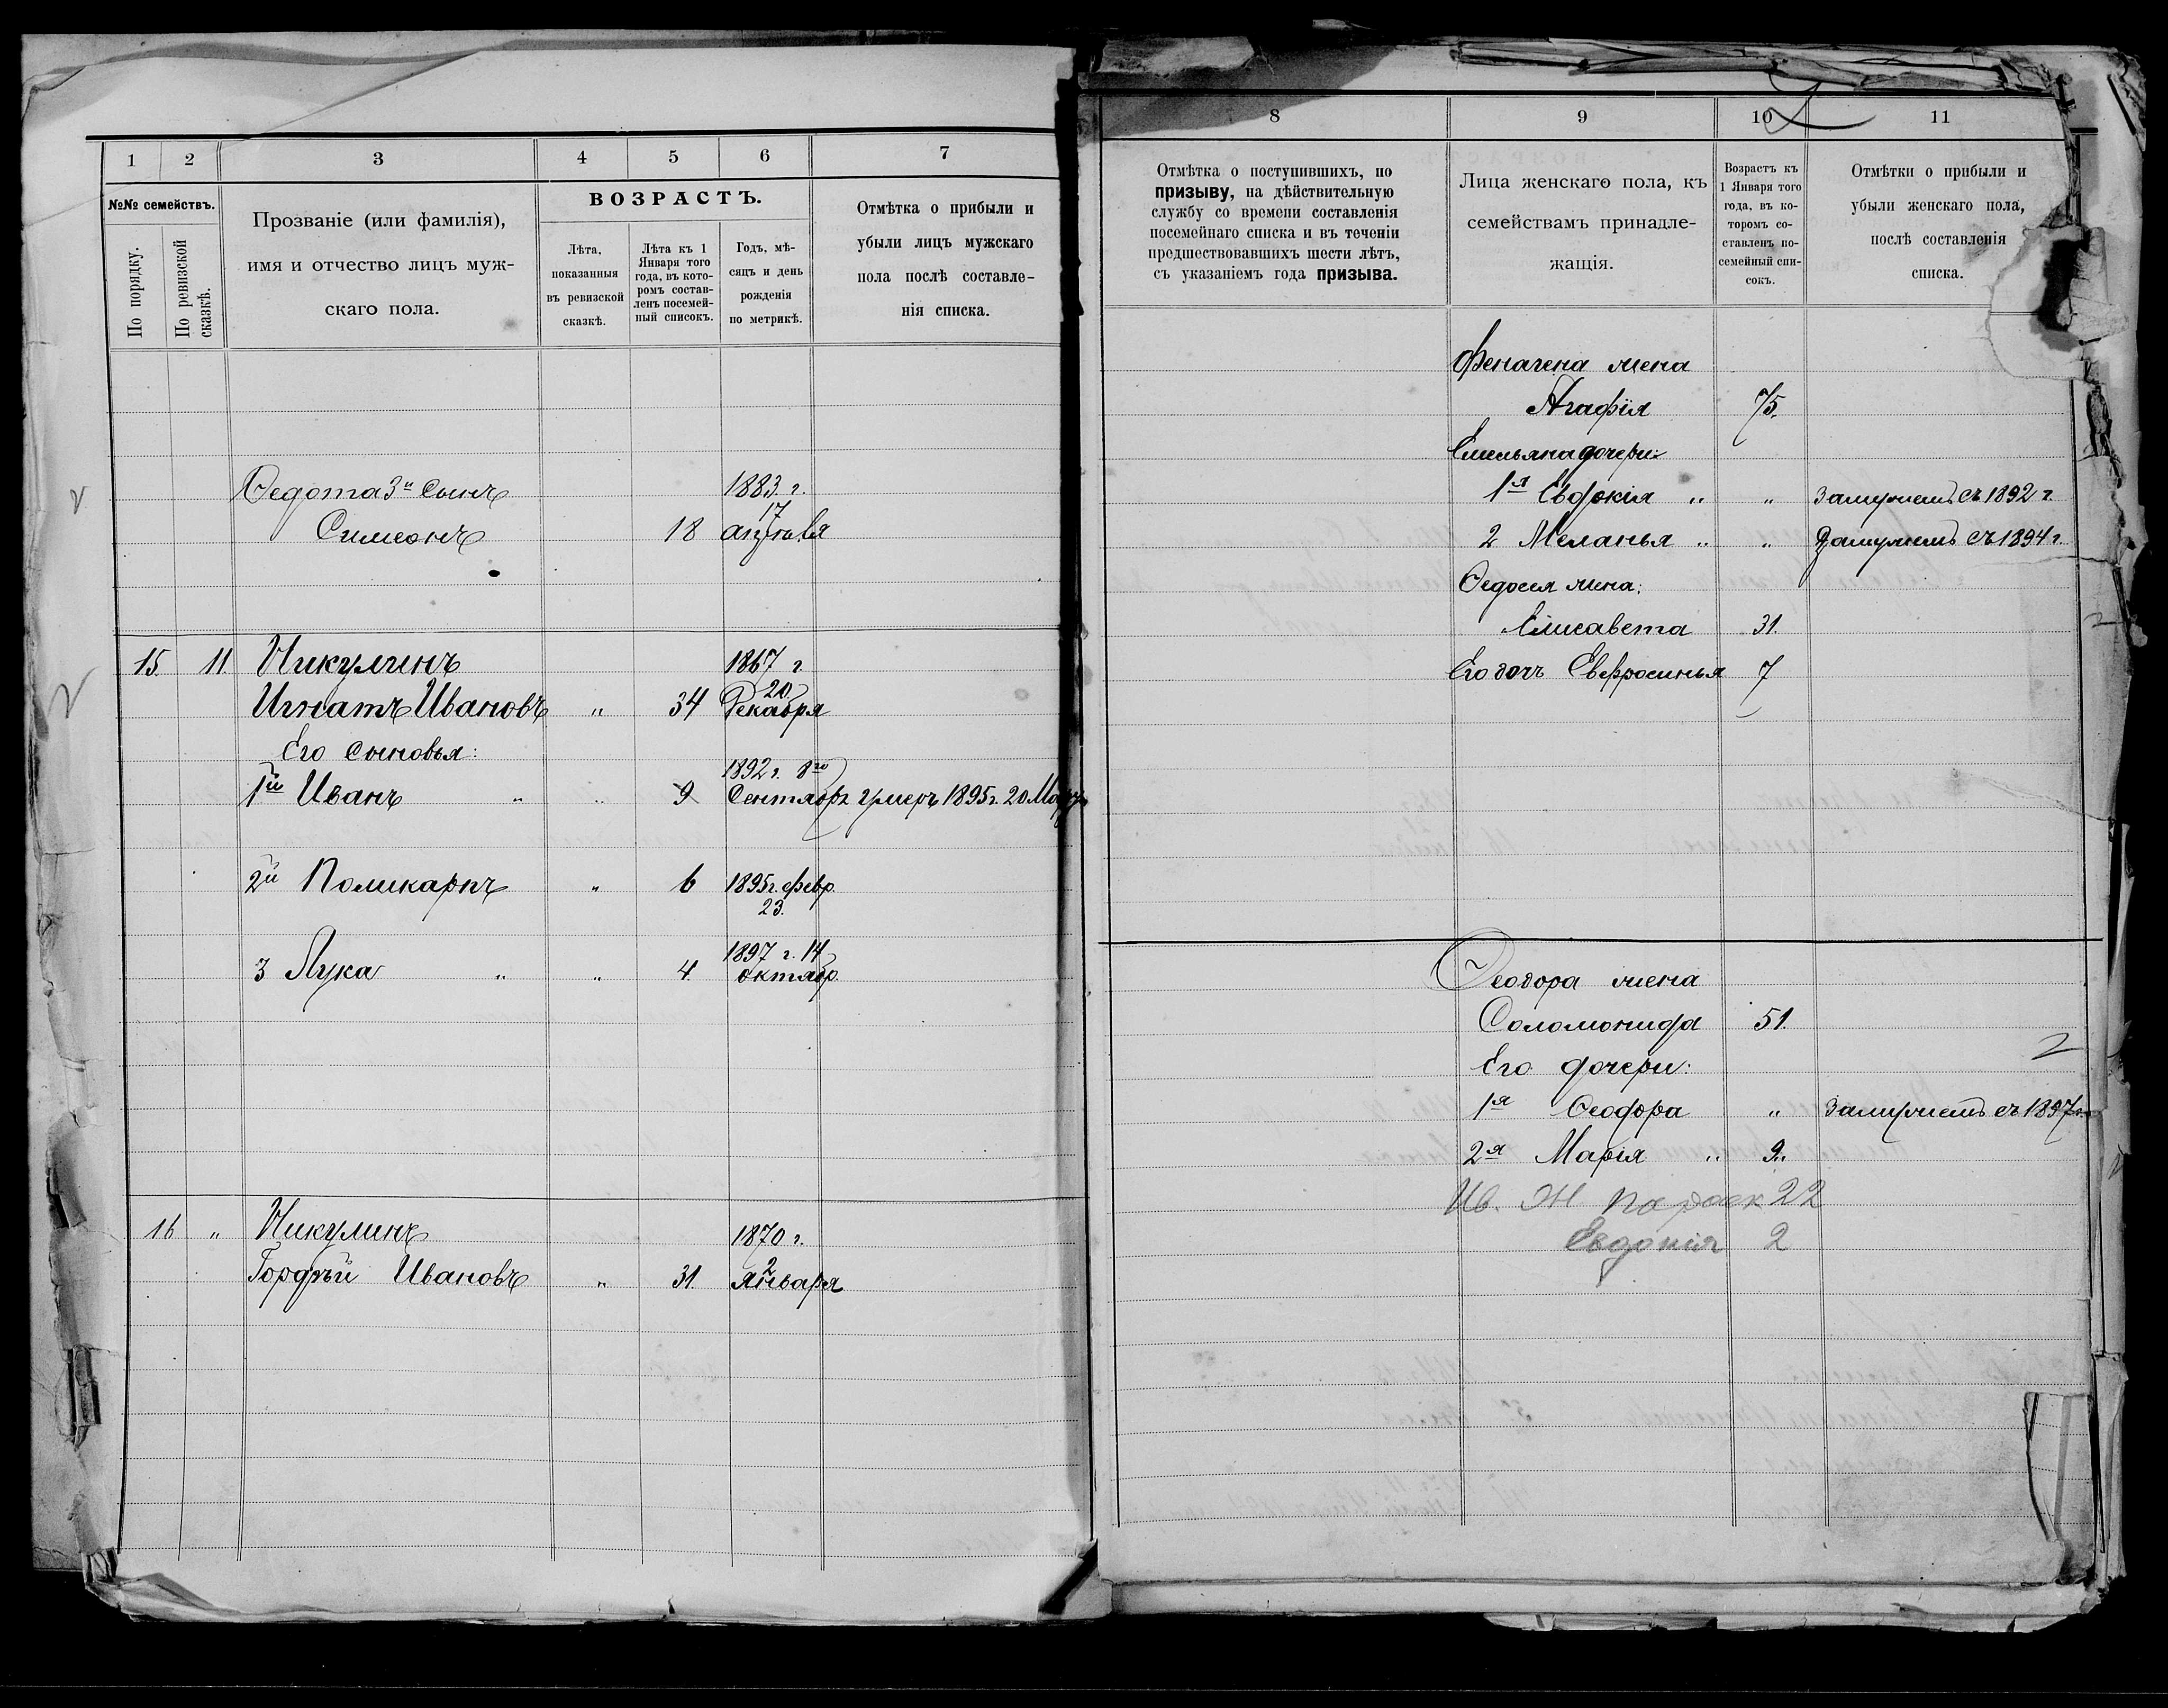 1 2 3 4 5 6 7
№№ семействъ.
По порядку.
По ревизской
сказкѣ.
Прозваніе (или фамилія),
имя и отчество лицъ муж-
скаго пола.
ВОЗРАСТЪ.
Лѣта,
показанныя
въ ревизской
сказкѣ.
Лѣта къ 1
Января того
года, въ кото-
ромъ состав-
ленъ посемей-
ный списокъ.
Годъ, мѣ-
сяцъ и день
рожденія
по метрикѣ.
Отмѣтка о прибыли и
убыли лицъ мужскаго
пола послѣ составле-
нія списка.
Ѳедота 3й Сынъ 1883 г.
17
Симеонъ 18
15. 11. Никулинъ 1867 г.
20
Игнатъ Ивановъ " 34 Декабря
Его сыновья:
1892 г. 8го
1й Иванъ " " 9 Сентябр. умеръ 1895 г. 20 Мар
2й Поликарпъ " 6 1895 г. февр.
23.
1897 г. 14
3 Лука " " 4 октябр.
16 " Никулинъ 1870 г.
2
Гордѣй Ивановъ " 31 Января
8 9 10 11
Отмѣтка о поступившихъ, по
призыву, на дѣйствительную
службу со времени составленія
посемейнаго списка и въ теченіи
предшествовавшихъ шести лѣтъ,
съ указаніемъ года призыва.
Лица женскаго пола, къ
семействамъ принадле-
жащія.
Возрастъ къ
1 Января того
года, въ ко-
торомъ со-
ставленъ по-
семейный спи-
сокъ.
Отмѣтки о прибыли и
убыли женскаго пола,
послѣ составленія
списка.
жена
Агафія 75.
Емельяна дочери:
1я Евдокія " " Замужемъ съ 1892 г.
2 Меланья " " Замужемъ съ 1894 г.
Ѳедосея жена:
Елисавета 31.
Его дочь Евфросинья 7
Ѳеодора жена
Соломонида 51.
Его дочери:
1я Ѳеодора " Замужемъ съ 1897 г.
2я Марія " 9.
Ив. Ж Параск 22
Евдокія 2